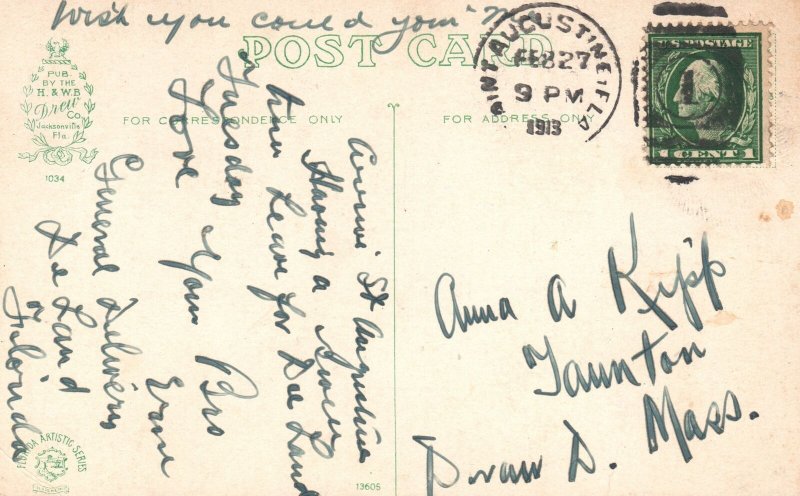 Wish you could join
POST CARD
PUB.
BY THE
H. & W.B.
Drew
CO.
Jacksonville
Fla.
1034
FOR CORRESPONDENCE ONLY
FOR ADDRESS ONLY
SAINT AUGUSTINE, FLA
FEB 27
9 PM
1913
U.S. POSTAGE
1 CENT 1
St Augustine
Having a
Leave for De Land
Tuesday
Love Your Bro
General Delivery
De Land
Florida
Anna A Kipp
Taunton
Draw D. Mass.
FLORIDA ARTISTIC SERIES
13605